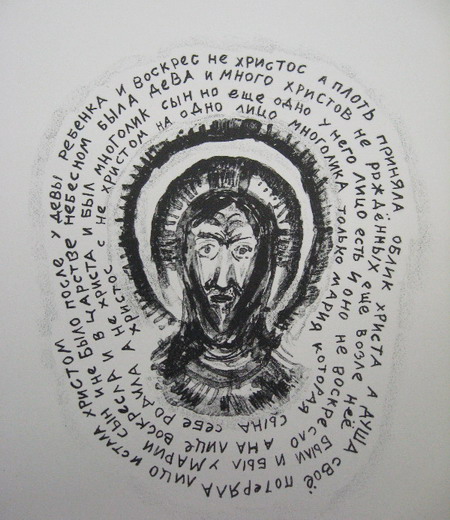 ПОСЛЕ У ДЕВЫ РЕБЕНКА И ВОСКРЕС НЕ ХРИСТОС А ПЛОТЬ ПРИНЯЛА ОБЛИК ХРИСТА А ДУША СВОЁ ПОТЕРЯЛА ЛИЦО И СТАЛА ХРИСТОМ
БЫЛО В ЦАРСТВЕ НЕБЕСНОМ БЫЛА ДЕВА И МНОГО ХРИСТОВ НЕ РОЖДЁННЫХ ЕЩЕ ВОЗЛЕ НЕЁ БЫЛИ И БЫЛ У МАРИИ СЫН И НЕ
И В ХРИСТА И БЫЛ МНОГОЛИК СЫН НО ЕЩЕ ОДНО У НЕГО ЛИЦО ЕСТЬ И ОНО НЕ ВОСКРЕСЛО А НА ЛИЦЕ ВОСКРЕСЛА И НЕ
ХРИСТОС С НЕ ХРИСТОМ НА ОДНО ЛИЦО МНОГОЛИКА ТОЛЬКО МАРИЯ КОТОРАЯ СЫНА СЕБЕ РОДИЛА А ХРИСТОС